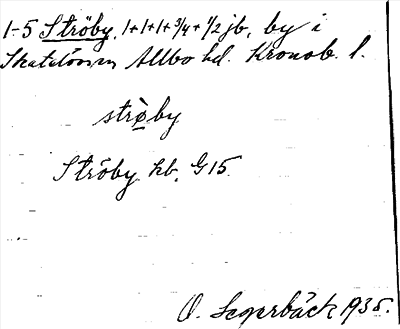 1-5 Ströby, 1+1+1+3/4+1/2 jb, by i
Skatelövs sn Allbo hd. Kronob. l.
strö̀by
Ströby hb. G15.
O. Segerbäck 1935.